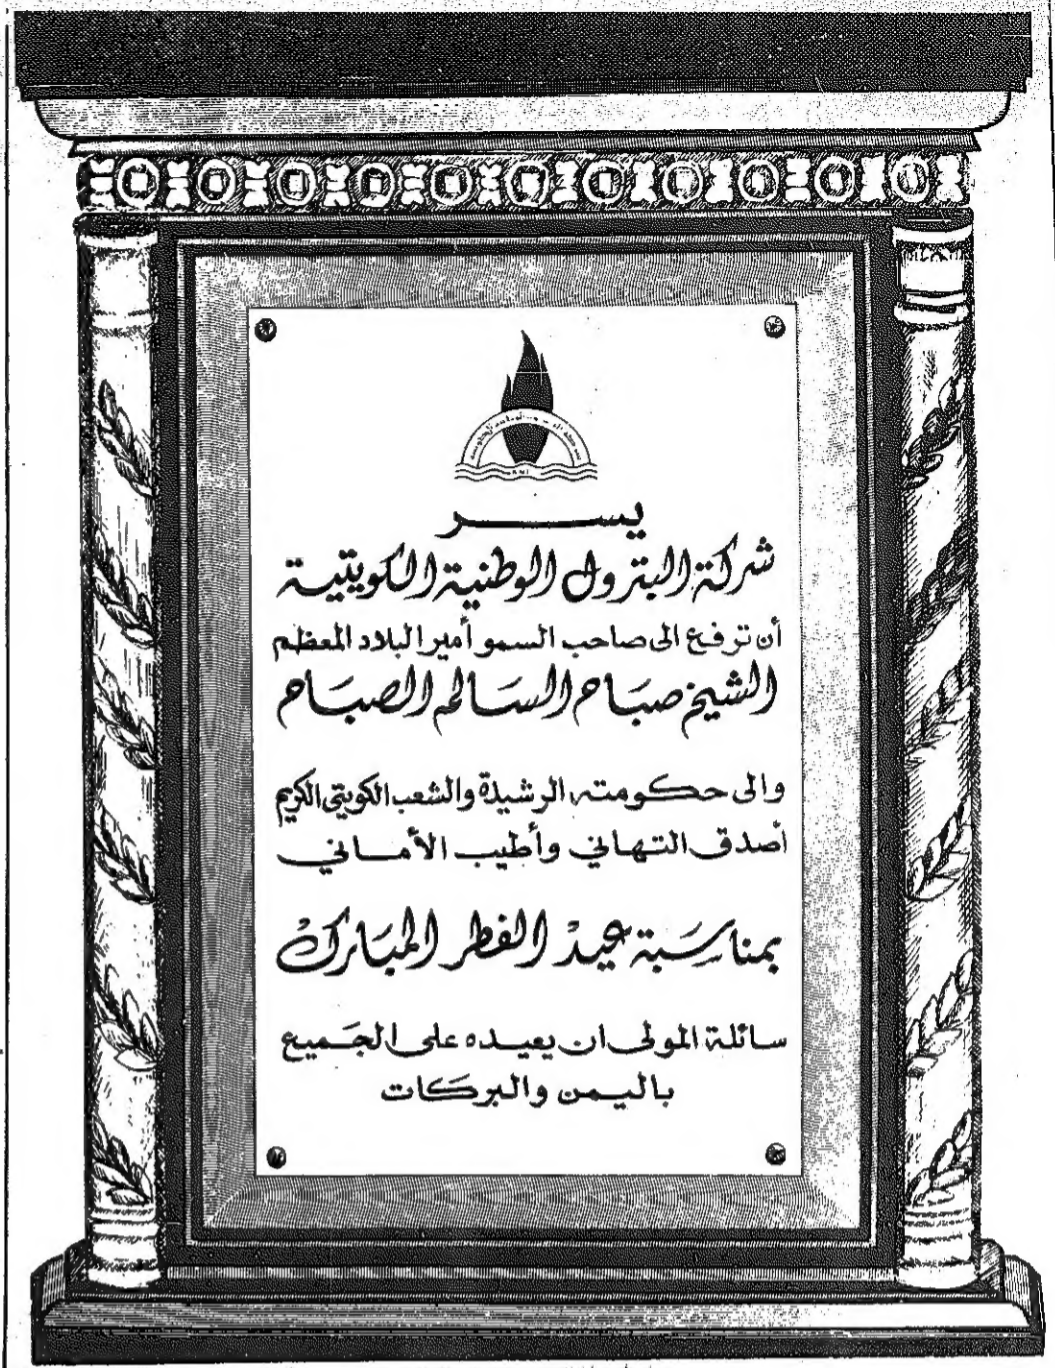 يسر
شركة البترول الوطنية الكويتية
أن ترفع الى صاحب السمو أمير البلاد المعظم
الشيخ صباح السالم الصباح
والى حكومته الرشيدة والشعب الكويتي الكريم
أصدق التهاني وأطيب الأماني
بمناسبة عيد الفطر المبارك
سائلة المولى ان يعيده على الجميع
باليمن والبركات